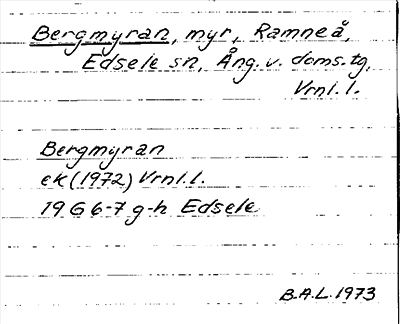 Bergmyran, myr, Ramneå,
Edsele sn, Ång. v. doms.tg.
Vrnl. l.
Bergmyran
ek (1972) Vrnl. l.
19 G 6-7 g-h Edsele
B.A.L. 1973